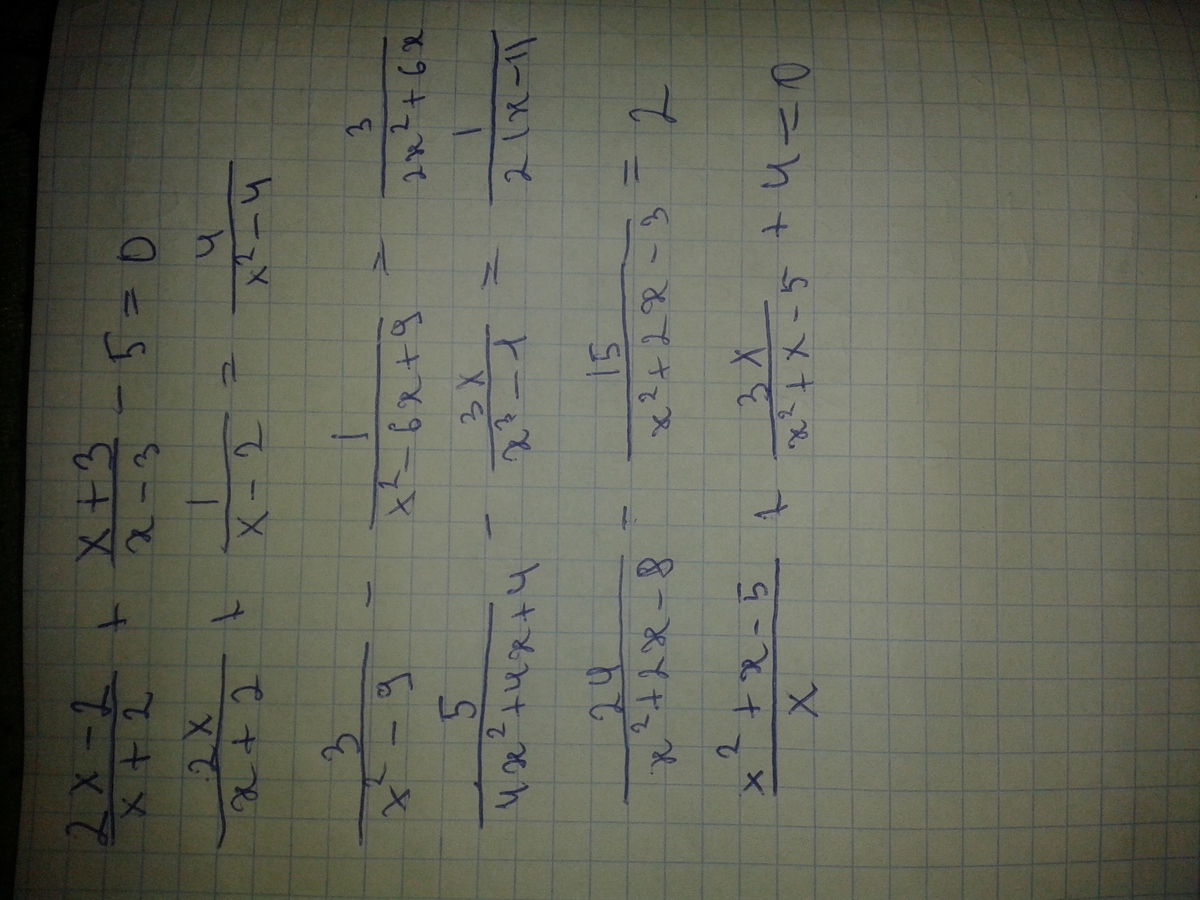 (2x-2)/(x+2) + (x+3)/(x-3) - 5 = 0
2x/(x+2) + 1/(x-2) = 4/(x²-4)
3/(x²-9) - 1/(x²-6x+9) = 3/(2x²+6x)
5/(4x²+4x+4) - 3x/(x³-1) = 1/(2(x-1))
24/(x²+2x-8) - 15/(x²+2x-3) = 2
(x²+x-5)/x + 3x/(x²+x-5) + 4 = 0